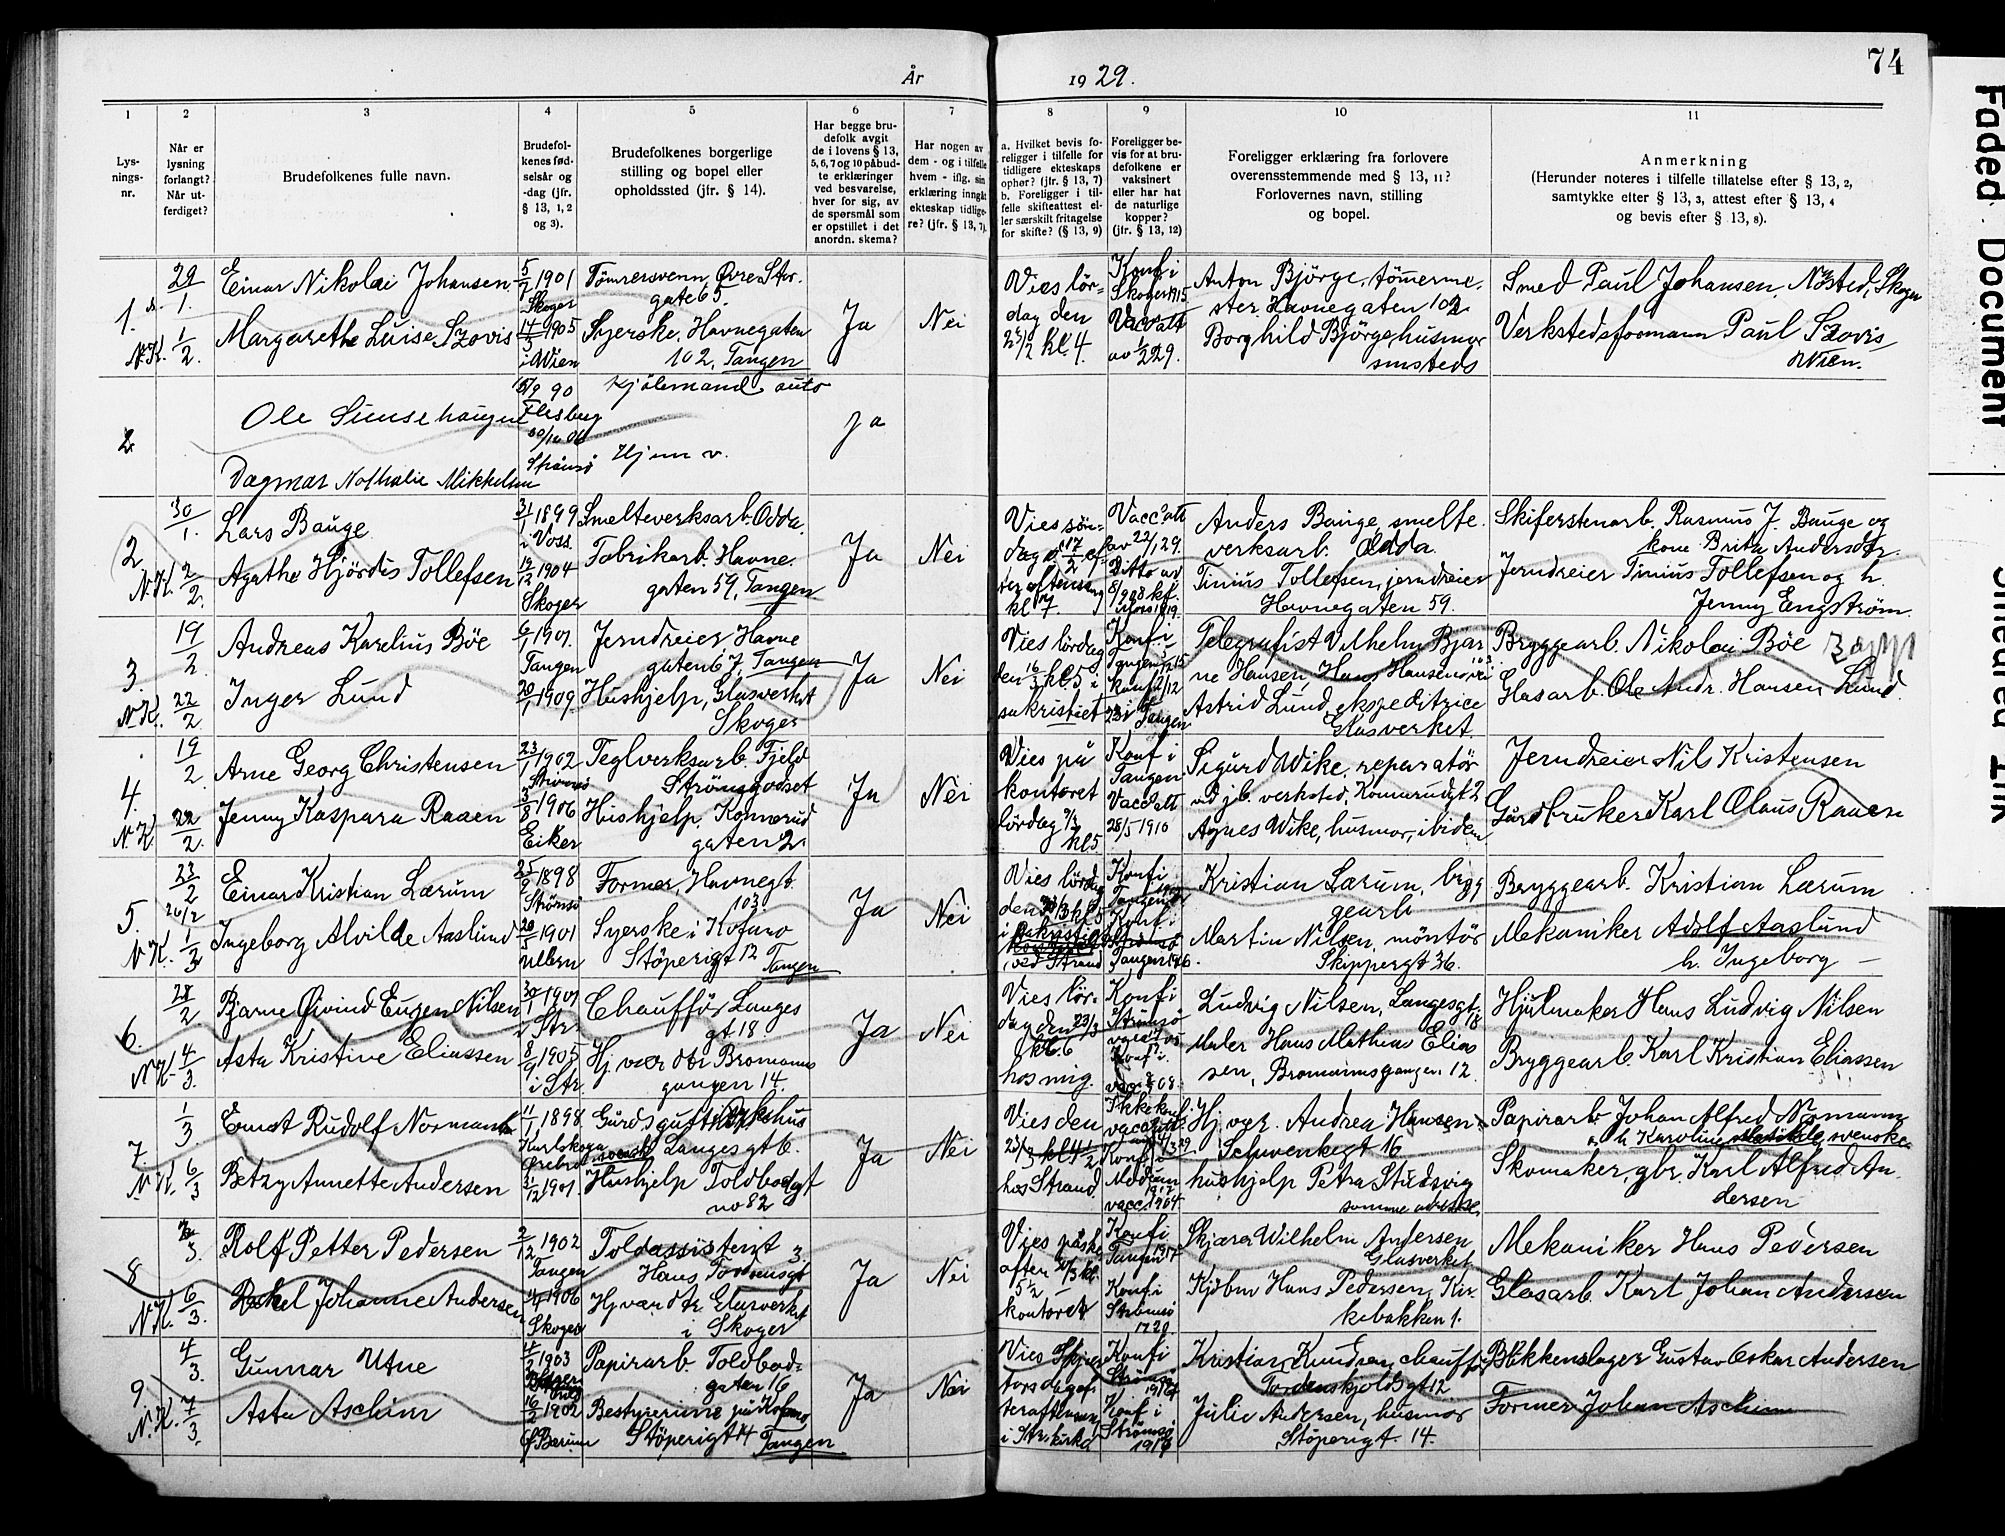 År 1929.
74
1
2
3
4
5
6
7
8
9
10
11
Lys-
nings-
nr.
Når er
lysning
forlangt?
Når ut-
ferdiget?
Brudefolkenes fulle navn.
Brudefol-
kenes fød-
selsår og
-dag (jfr.
§ 13, 1, 2
og 3).
Brudefolkenes borgerlige
stilling og bopel eller
opholdssted (jfr. § 14).
Har begge bru-
defolk avgit
de i lovens § 13,
5, 6, 7 og 10 påbud-
te erklæringer
ved besvarelse,
hver for sig, av
de spørsmål som
er opstillet i det
anordn. skema?
Har nogen av
dem - og i tilfelle
hvem - iflg. sin
erklæring inngåt
ekteskap tidlige-
re? (jfr. § 13, 7).
a. Hvilket bevis fo-
religger i tilfelle for
tidligere ekteskaps
ophør? (jfr. § 13, 7)
b. Foreligger i til-
felle skifteattest el-
ler særskilt fritagelse
for skifte? (§ 13, 9)
Foreligger be-
vis for at bru-
defolkene er
vaksinert
eller har hat
de naturlige
kopper?
(jfr. § 13, 12)
Foreligger erklæring fra forlovere
overensstemmende med § 13, 11?
Forlovernes navn, stilling
og bopel.
Anmerkning
(Herunder noteres i tilfelle tillatelse efter § 13, 2,
samtykke efter § 13, 3, attest efter § 13, 4
og bevis efter § 13, 8).
1.
29/1.
N.K. 1/2.
Einar Nikolai Johansen
Margarethe Luise Szovis
5/7 1901
Skoger
14/5 1905
i Wien
Tömrersvenn, Øvre Stor-
gate 65.
Syerske, Havnegaten
102, Tangen
Ja
Nei
Vies lör-
dag den
23/2 kl. 4.
Konf i
Skoger 1915
Vac. att
av 1/2 29.
Anton Bjørge, tömerme-
ster, Havnegaten 102
Borghild Bjørge husmor
smsteds
Smed Paul Johansen, Nøsted, Skoger
Verkstedsformann Paul Szovis
Wien.
2
Ole Simsehaugen
Dagmar Nathalie Mikkelsen
90
Flesberg
Strömsö
auto
Hjem v.
ja
2
30/1.
N.K. 2/2.
Lars Bauge
Agathe Hjördis Tollefsen
31/1 1899
i Voss.
14/12 1904
Skoger
Smelteverksarb. Odda.
Fabrikarb. Havne-
gaten 59, Tangen
Ja
Nei
Vies søn-
dag 17/2 ef-
ter aftensang
kl 7
Vacc. att
av 22/1 29.
Ditto av
Anders Bauge, smelte-
verksarb. Odda.
Tinius Tollefsen, jerndreier
Havnegaten 59.
Skiferstenarb. Rasmus J. Bauge og
kone Brita Andersdtr.
Jerndreier Tinius Tollefsen og h.
Jenny Engström.
3.
19/2
N.K. 22/2
Andreas Karelius Böe
Inger Lund
6/1 1907.
Tangen
20/1 1909
Jerndreier Havne
gaten 67, Tangen
Hushjelp, Glasverket
Skoger
Ja
Nei
Vies lördag
den 16/3 kl. 5 i
sakristiet
Konf i
Tangen
Telegrafist Vilhelm Bjar
ne Hansen, Hans Hansensvei
Astrid Lund, ekspeditrice
Glasverket.
Bryggearb. Nikolai Böe
Glasarb. Ole Andr. Hansen Lund.
4.
19/2
N.K. 22/2.
Arne Georg Christensen
Jenny Kaspara Raaen
23/1 1902
Strömsö
3/8 1906
Eiker
Teglverksarb. Fjeld
Strömsgodset
Hushjelp, Konnerud
gaten 2.
Ja
Nei
Vies på
kontoret
lördag
kl 5
Konf i
Tangen
Vacc att
28/5 1910
Sigurd Wike, reparatör
ved jb. verksted, Konnerudgt 2
Agnes Wike, husmor, ibidem
Jerndreier Nils Kristensen
Gårdbruker Karl Olaus Raaen
5.
23/2
26/2
N.K. 1/3
Einar Kristian Lærum
Ingeborg Alvilde Aaslund
25/2 1898
Strömsö
20/5 1901
Ullern
Former, Havnegt.
103
Syerske i Kofano
Stöperigt 12 Tangen
Ja
Nei
Vies lördag
den 23/3 kl 5
i sakristiet
ved Strand
Konf i
Tangen
Konf i
Kristian Lærum, brygg
gearb.
Martin Nilsen, montör
Skippergt 36.
Bryggearb. Kristian Lærum
Mekaniker Adolf Aaslund
h. Ingeborg —
6.
28/2
N.K. 4/3.
Bjarne Øivind Eugen Nilsen
Asta Kristine Eliassen
30/1 1907
i Str.
8/9 1905
i Str.
Chaufför Langes
gt 18
Hj. vær. dtr. Bromanns
gangen 14.
Ja
Nei
Vies lör-
dag den 23/3
kl. 6
hos mig.
Konf i
Strömsö
Konf i
Ludvig Nilsen, Langesgt. 18
Maler Hans Mathias Elias
sen, Bromannsgangen 12.
Hjulmaker Hans Ludvig Nilsen
Bryggearb. Karl Kristian Eliassen
7
1/3.
N.K. 6/3
Ernst Rudolf Normann
Betzy Annette Andersen
11/1 1898
Karlskoga
Örebro
31/12 1901.
Gårdsgutt Sykehus
svensk Langesgt 6.
Hushjelp Toldbodgt
no 82
Ja
Nei
Vies den
23/3 kl 4 1/2
hos Strand
Ikke konf.
Konf i
Modum
1917
vacc. 1904
Hj. vær. Andrea Hansen
Schwenkegt 16
hushjelp Petra Studsvig
samme adresse.
Papirarb Johan Alfred Normann
h. Karoline Matilde, svenske
Skomaker, gbr. Karl Alfred An-
dersen
8
3.
N.K. 6/3.
Rolf Petter Pedersen
Rakel Johanne Andersen
2/12 1902
Tangen
1906
Skoger
Toldassistent
Hans Tordensgt 3
Hj vær dtr. Glasverket
i Skoger
Ja
Nei
Vies påske
aften 30/3 kl.
5 1/2
kontoret
Konf i
Tangen 1917
Konf i
Strömsö
1920.
Skjærer Wilhelm Andersen
Glasverket
Kjöbm Hans Pedersen, Kir-
kebakken 1.
Mekaniker Hans Pedersen
Glasarb. Karl Johan Andersen
9.
4/3.
N.K. 7/3.
Gunnar Utne
Asta Aschim
4/2 1903
16/2 1902
Ø. Bærum
Papirarb Toldbod-
gaten 16
Bestyrerinne på Kofano,
Stöperigt 14 Tangen
Ja
Nei
Vies Skjær
torsdag ef-
teraftensang
i Str. kirke
Konf i
Strömsö
Konf i
Strömsö
1916
Kristian Knudsen, chaufför
Tordenskjoldsgt 12
Julie Andersen, husmor
Stöperigt. 14.
Blikkenslager Gustav Oskar Andersen
Former Johan Aschim
Faded Document
Smeared Ink